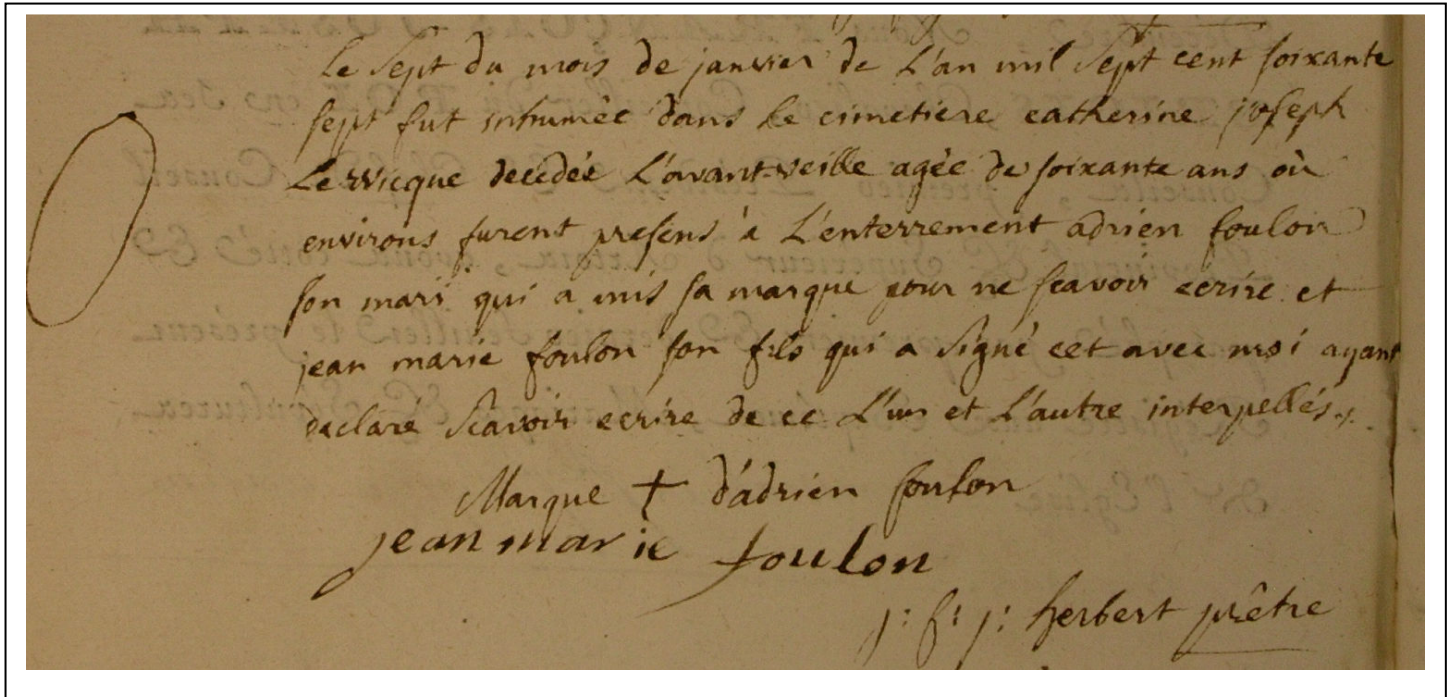 Le Sept du mois de janvier de L'an mil Sept cent soixante
sept fut inhumèe dans le cimetiere catherine joseph
Lewicque decedée L'avant-veille agée de soixante ans où
environs furent presens à L'enterrement adrien foulon
son mari qui a mis sa marque pour ne scavoir ecrire et
jean marie foulon son fils qui a Signé cet avec moi ayant
declaré Scavoir ecrire de ce L'un et L'autre interpellés.
Marque + d'adrien foulon
jean marie foulon
j: f: j: herbert prêtre